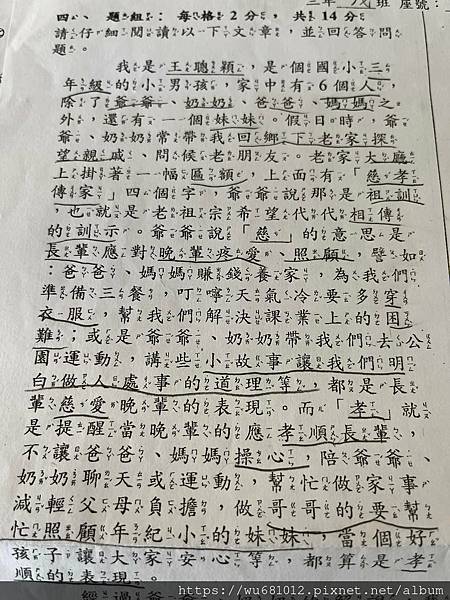 三年 戊 班 座號：
四、題組：每格2分，共14分
請仔細閱讀以下文章，並回答問
題。
我是王聰穎，是個國小三
年級的小男孩，家中有6個人，
除了爺爺、奶奶、爸爸、媽媽之
外，還有一個妹妹。假日時，爺
爺、奶奶常帶我回鄉下老家探
望親戚、問候老朋友。老家大廳
上掛著一幅匾額，上面有「慈孝
傳家」四個字，爺爺說那是祖訓
，也就是老祖宗希望代代相傳
的訓示。爺爺說「慈」的意思是
長輩應對晚輩疼愛、照顧，譬如
：爸爸、媽媽賺錢養家，為我們
準備三餐，叮嚀天氣冷要多穿
衣服，幫我們解決課業上的困
難；或是爺爺、奶奶帶我們去公
園運動，講些小故事讓我們明
白做人處事的道理等，都是長
輩慈愛晚輩的表現。而「孝」就
是提醒當晚輩的應孝順長輩，
不讓爸爸、媽媽操心，陪爺爺、
奶奶聊天或運動，幫忙做家事
減輕父母負擔，做哥哥的要幫
忙照顧年紀小的妹妹，當個好
孩子讓大家安心等，都算是孝
順的表現。
經過爺爺
https://wu681012.pixnet.net/album